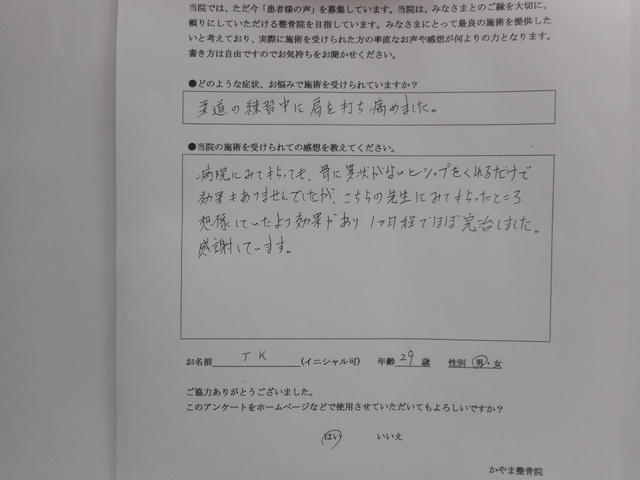 当院では、ただ今「患者様の声」を募集しています。当院は、みなさまとのご縁を大切に、
頼りにしていただける整骨院を目指しています。みなさまにとって最良の施術を提供した
いと考えており、実際に施術を受けられた方の率直なお声や感想が何よりの力となります。
書き方は自由ですのでお気持ちをお聞かせください。
●どのような症状、お悩みで施術を受けられていますか？
柔道の練習中に肩を打ち痛めました。
●当院の施術を受けられての感想を教えてください。
病院にみてもらっても、骨に異状がないとシップをくれるだけで
効果もありませんでしたが、こちらの先生にみてもらったところ
想像していたより効果があり 1ヵ月程でほぼ完治しました。
感謝しています。
お名前 TK (イニシャル可) 年齢 29 歳 性別 男・女
ご協力ありがとうございました。
このアンケートをホームページなどで使用させていただいてもよろしいですか？
はい いいえ
かやま整骨院